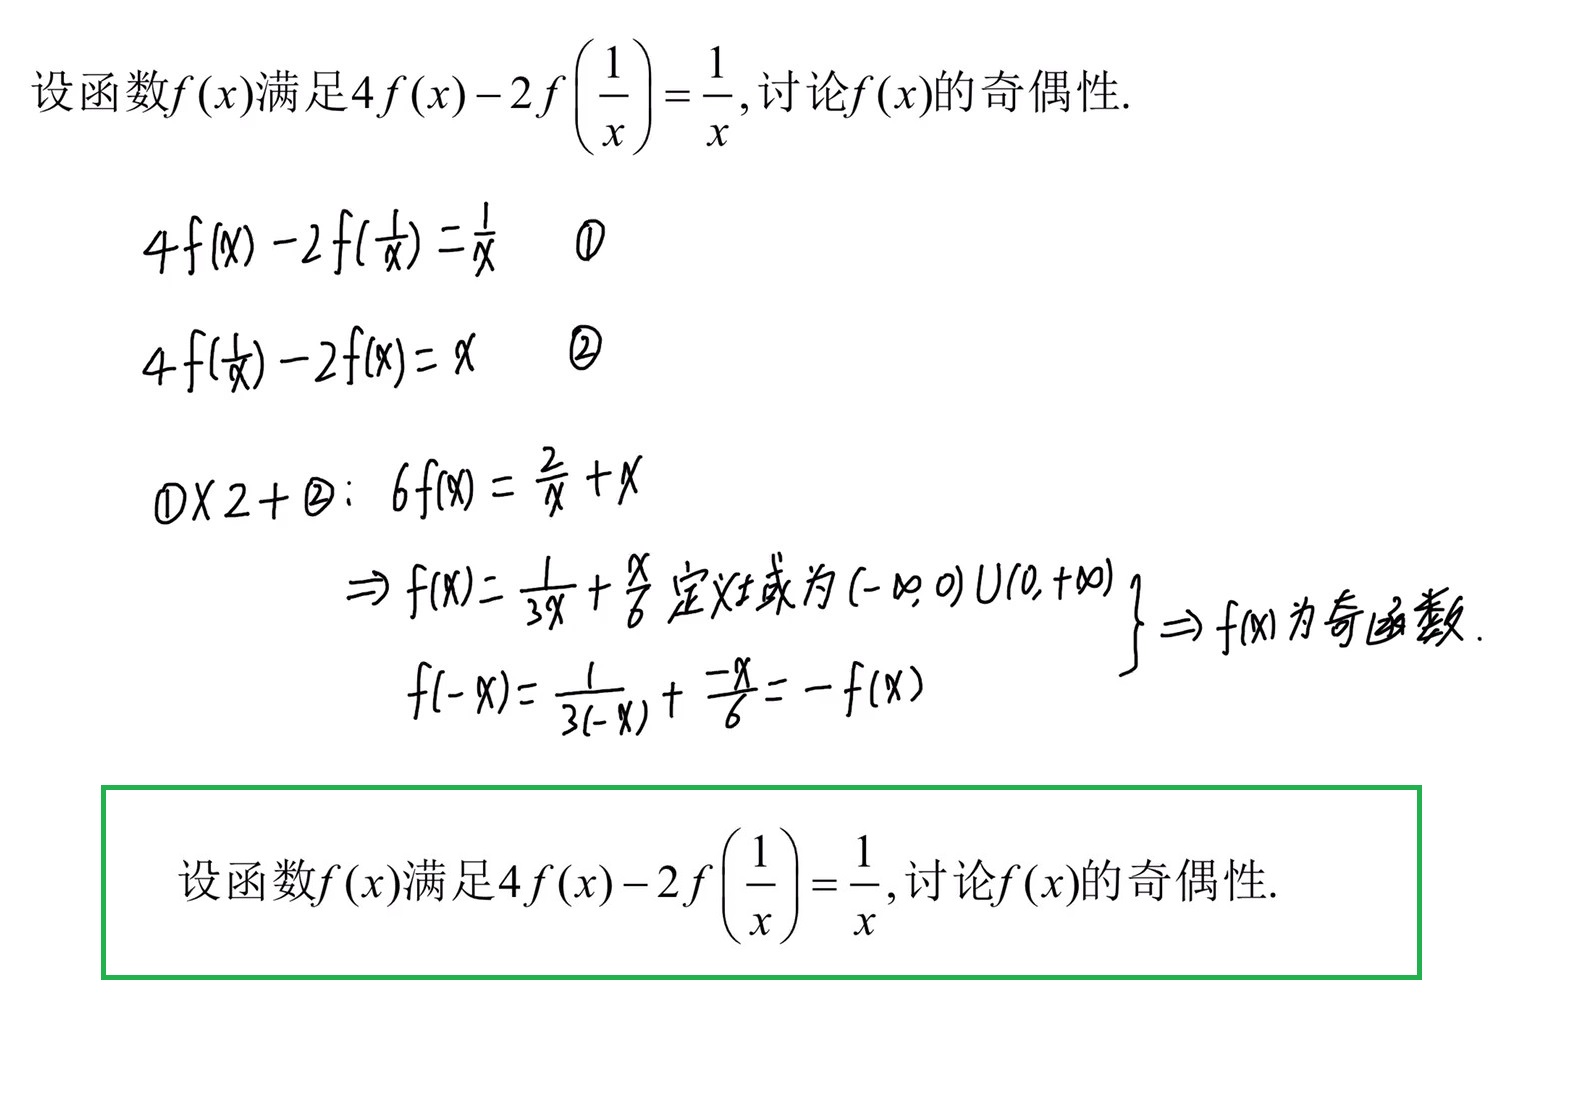 设函数f(x)满足4f(x)−2f(1/x)=1/x,讨论f(x)的奇偶性.
4f(x)−2f(1/x)=1/x ①
4f(1/x)−2f(x)=x ②
①×2+②: 6f(x)=2/x+x
⇒f(x)=1/3x+x/6 定义域为(-∞,0)∪(0,+∞)
f(-x)=1/3(-x)+-x/6=-f(x)
}⇒f(x)为奇函数.
设函数f(x)满足4f(x)−2f(1/x)=1/x,讨论f(x)的奇偶性.